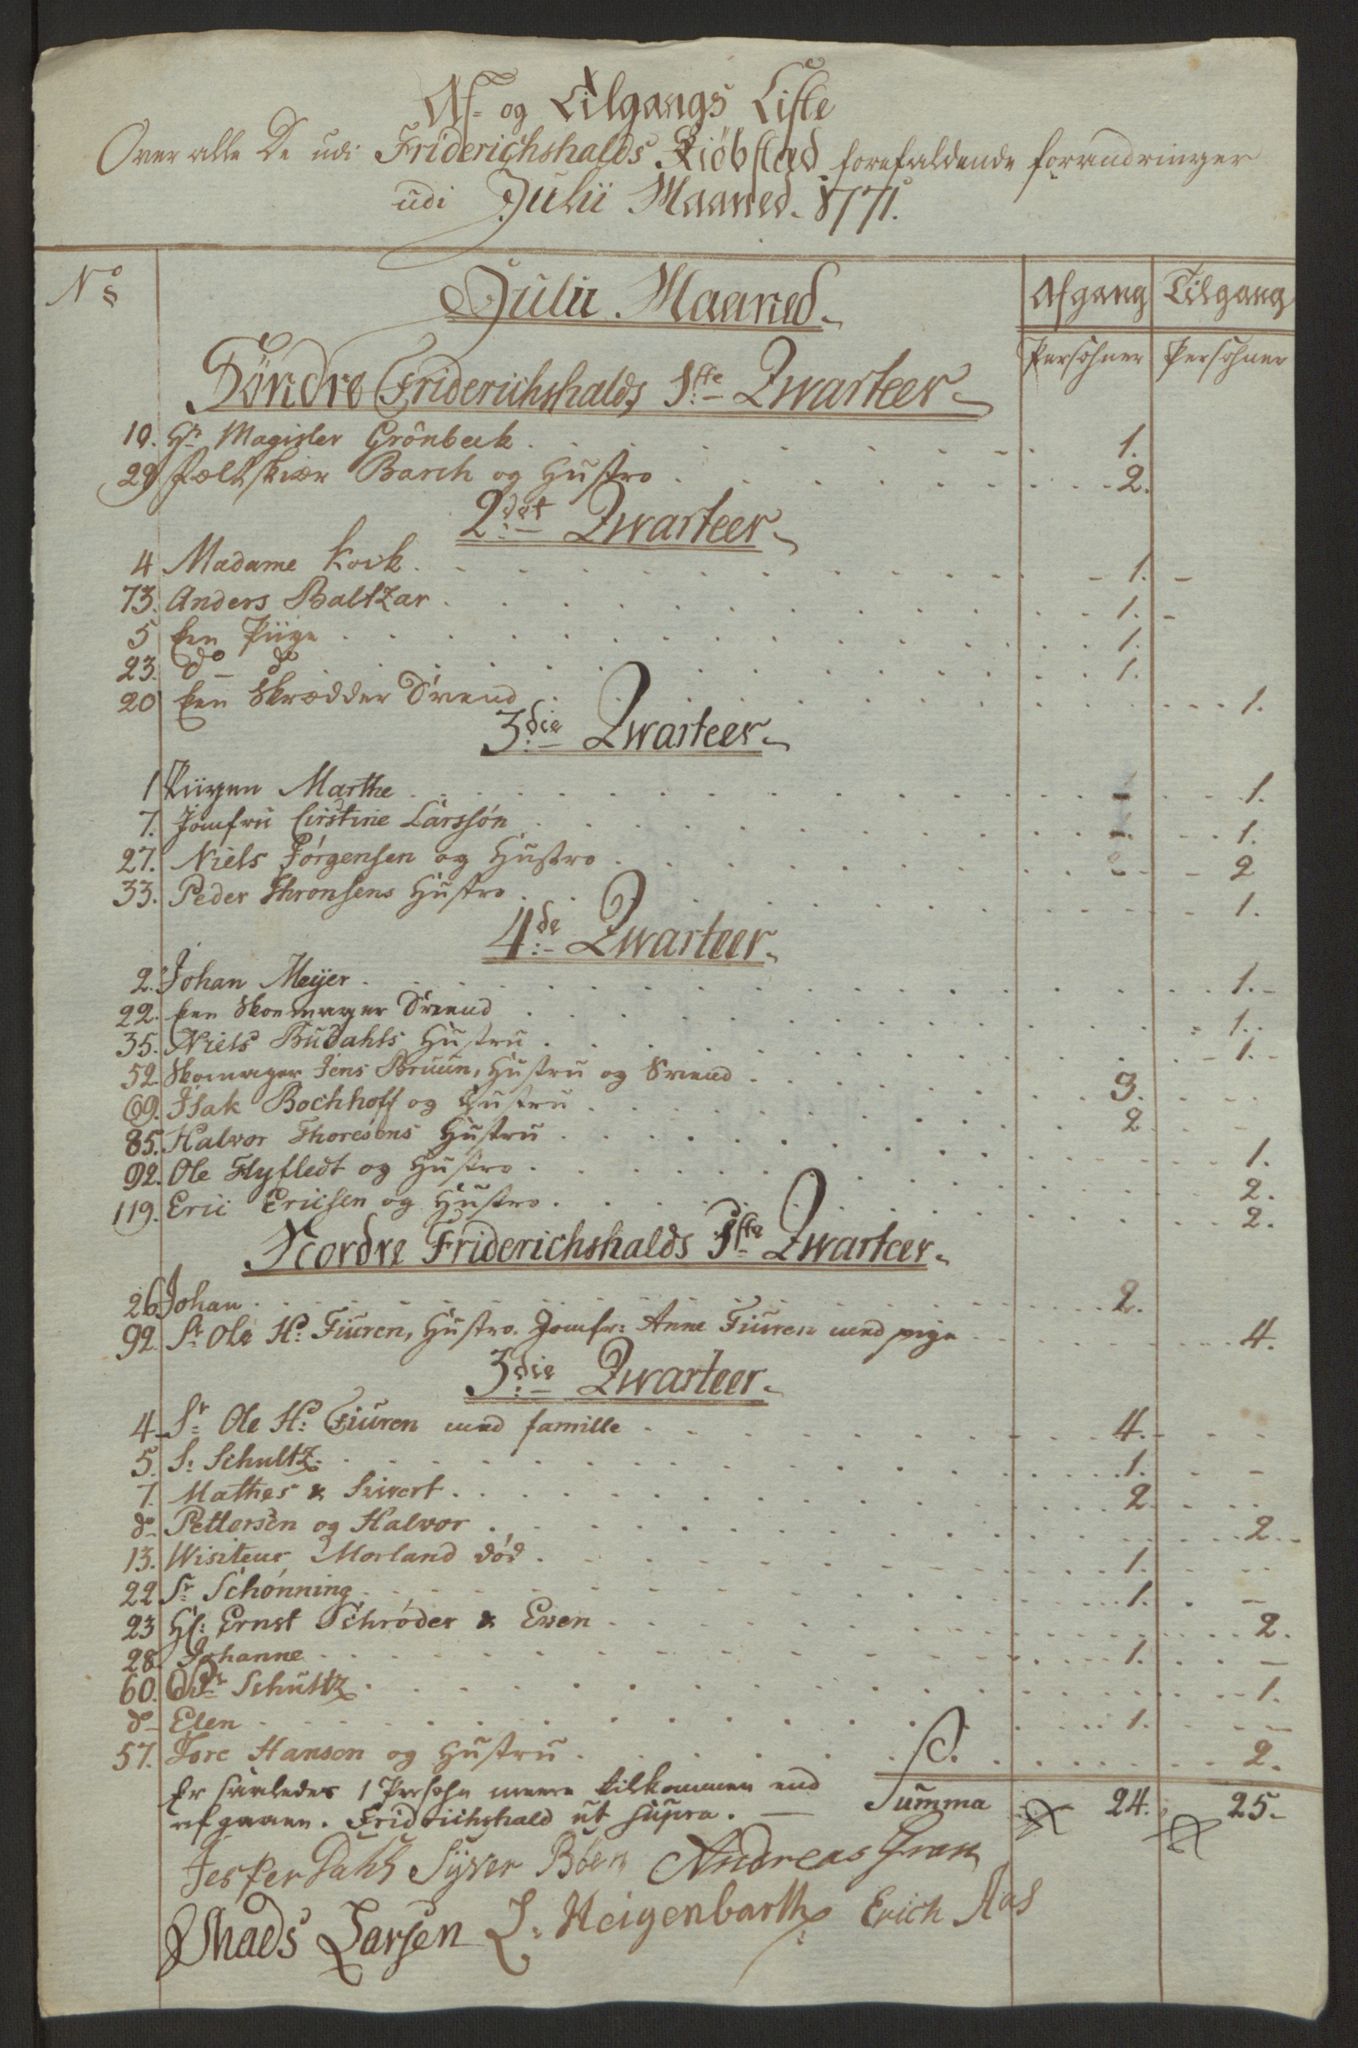 Af- og Tilgangs Liste
Over alle De udi Friderichshalds Kiöbsted forefaldende forandringer
udi Julii Maaned. 1771.
No Julii Maaned. Afgang Tilgang
Persohner Persohner
Söndre Friderichshalds 1ste Qwarteer
19. Hr Magister Grönbeck 1.
29 Feltskiær Barch og Hustro 2.
2det Qwarteer
4 Madame Kock 1.
73. Anders Baltzar 1.
5 Een Piige 1.
23. do do 1.
20 Een Skrædder Svend 1.
3die Qwarteer
1 Piigen Marthe 1.
7. Jomfru Cirstine Larssön 1.
27. Niels Jörgensen og Hustro 2
33. Peder Thronsens Hustro 1.
4de Qwarteer
2. Johan Meyer 1.
22. Een Skoemager Svend 1.
35. Niels Budahls Hustru 1.
52. Skomager Jens Bruun, Hustru og Svend 3.
69. Isak Bochhoff og Hustru 2
85. Halvor Thoresens Hustru 1.
92. Ole Flyfledt og Hustro 2.
119. Eric Ericsen og Hustro 2.
Nordre Friderichshalds 1ste Qwarteer
26 Johan 2.
92. Sr Ole H: Fiuren, Hustro. Jomfr: Anne Fiuren med pige 4.
3die Qwarteer
4 Sr Ole H: Fiuren med famille 4.
5. Sr Schultz 1.
7. Mathes & Sivert 2
do Pettersen og Halvor 2
13. Wisiteur Morland död 1.
22 Sr Schönning 1.
23 Hr: Ernst Schröder & Even 2.
28. Johanne 1.
60. Sr Schultz 1.
do Elen 1.
57. Tore Hansen og Hustru 2.
Er saaledes 1 Persohn meere tilkommen end
afgaaen. Fridrichshald ut supra. Summa 24. 25.
Jesper Dahl Syver Böen Andreas Gran
Mads Larsen L: Heigenbarth Erich Aas